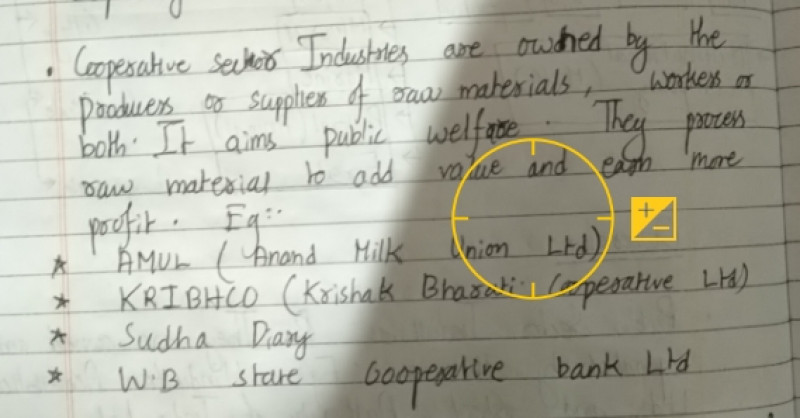 • Cooperative sector Industries are owned by the
producers or supplies of raw materials, workers or
both. It aims public welfare. They process
raw material to add value and earn more
profit. Eg:-
* AMUL (Anand Milk Union Ltd)
* KRIBHCO (Krishak Bharati Cooperative Ltd)
* Sudha Diary
* W.B state Cooperative bank Ltd